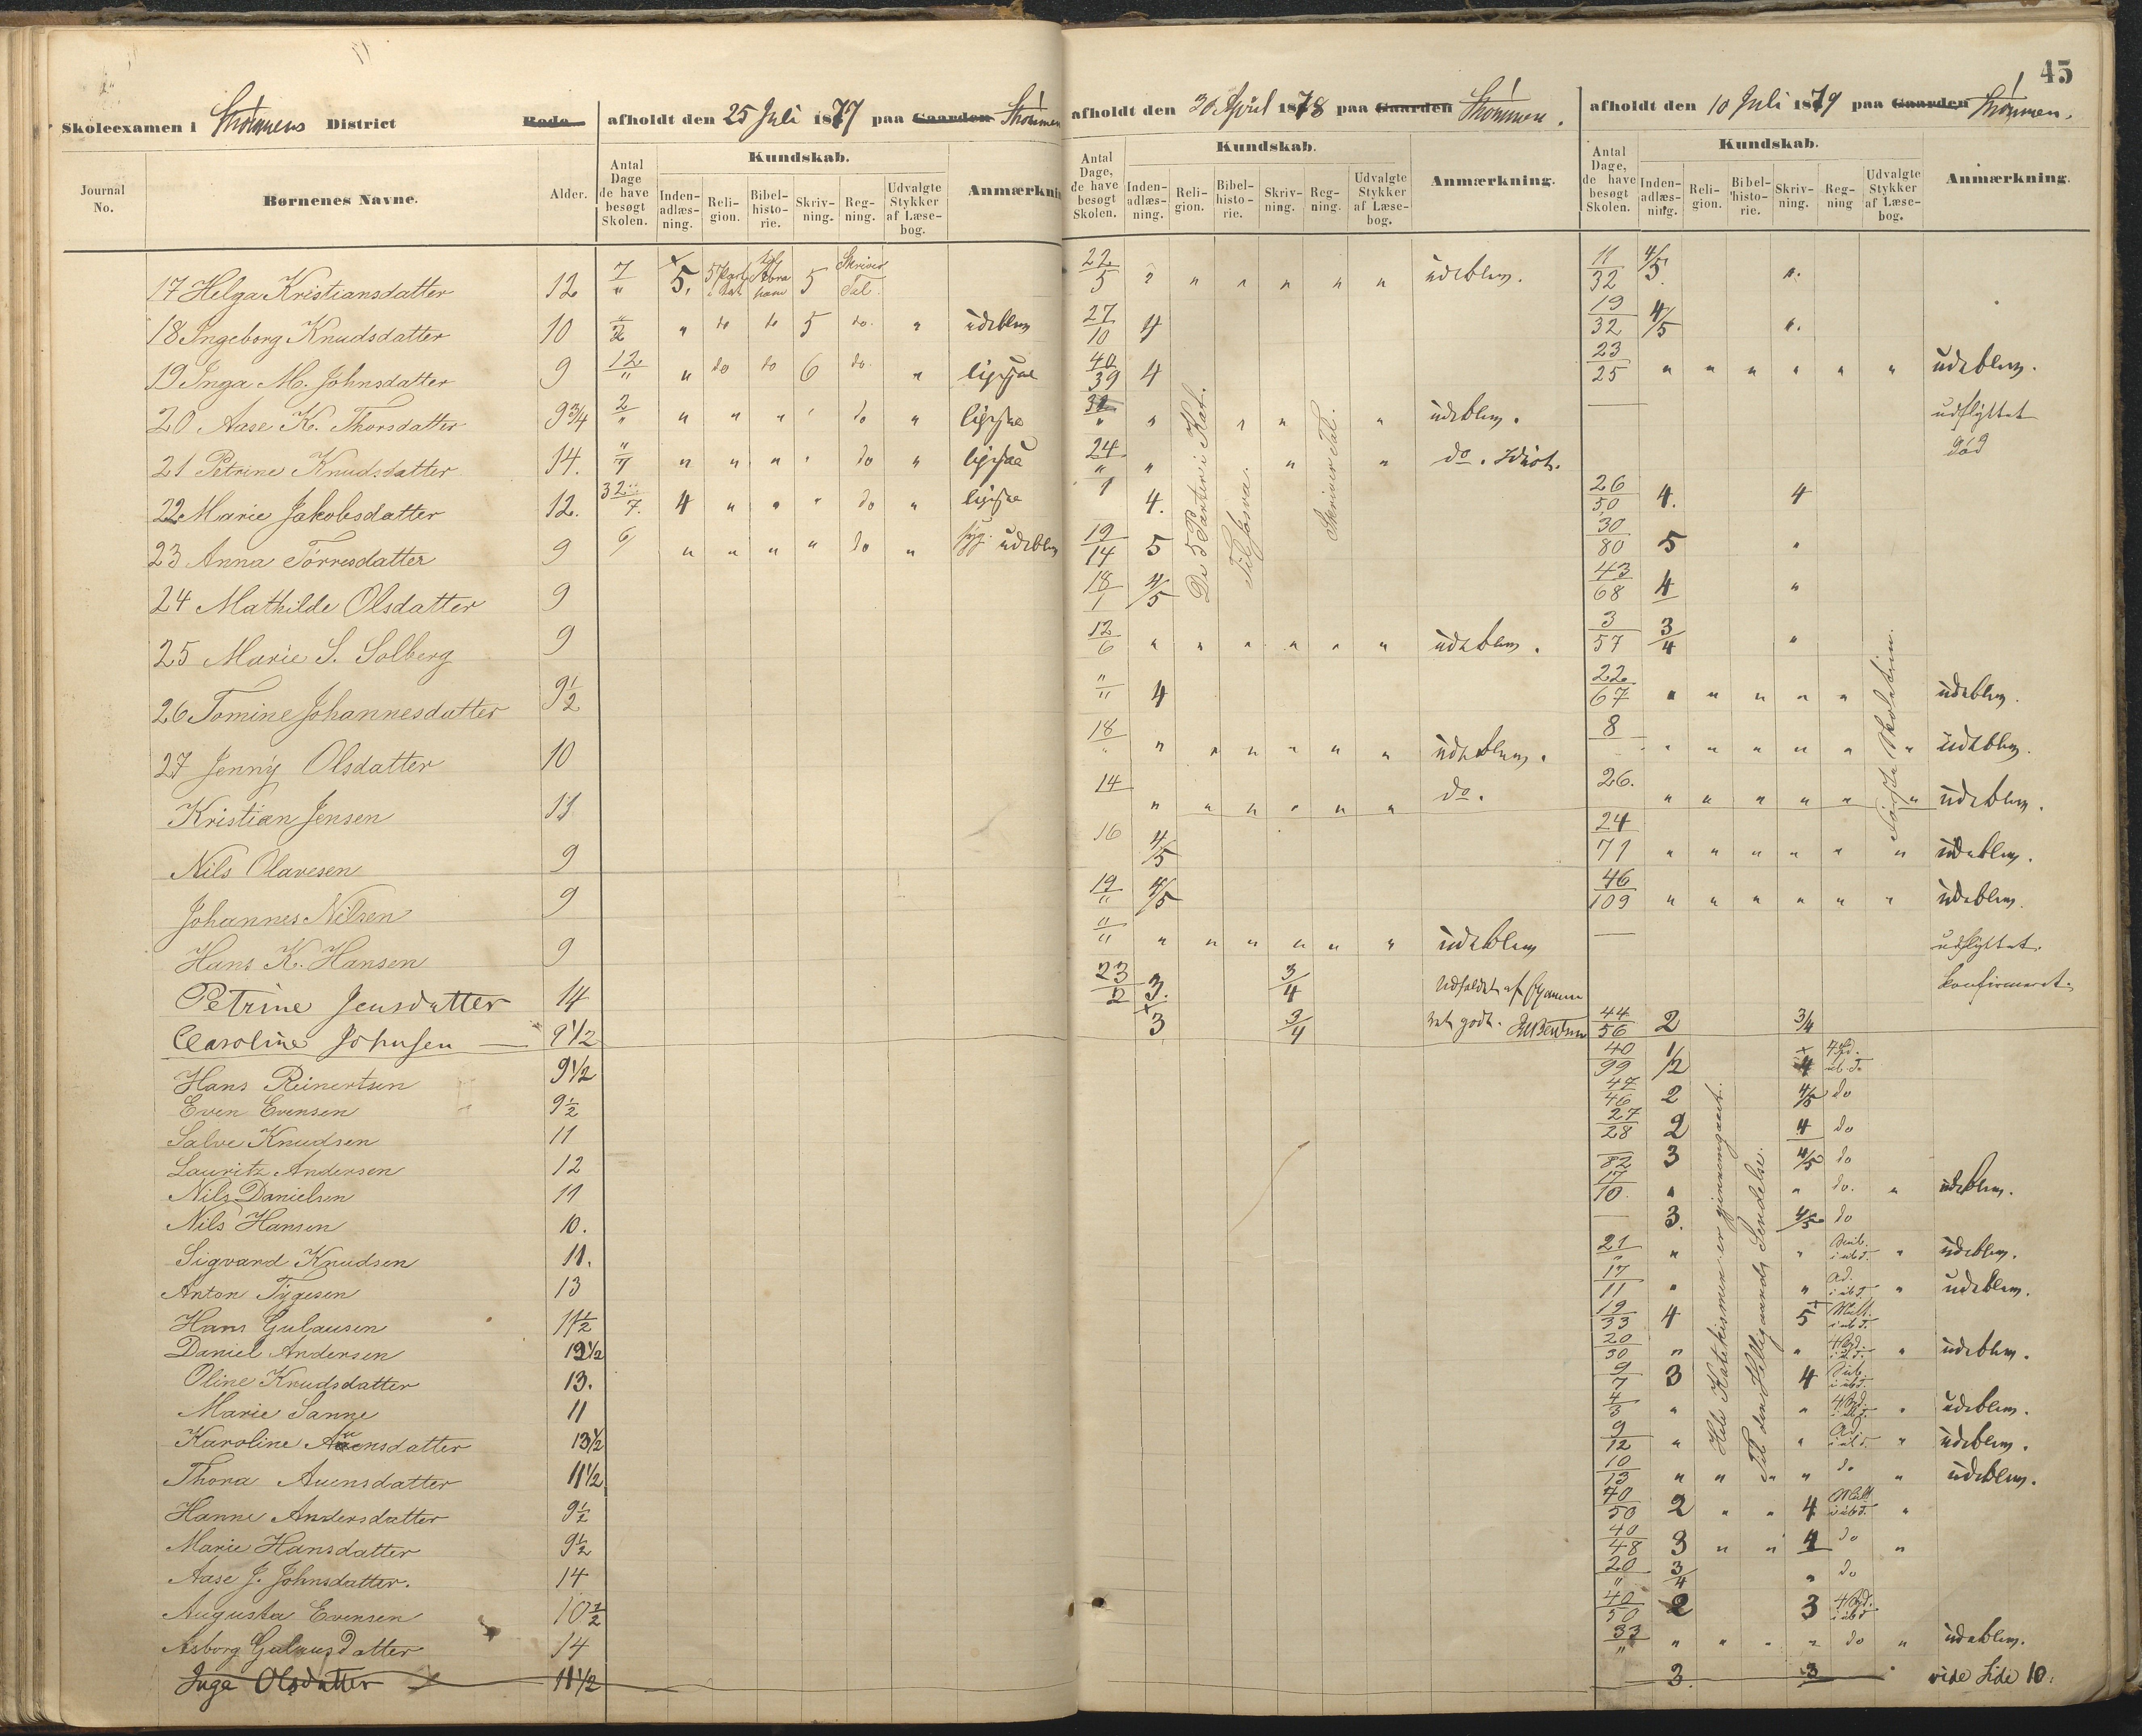 45
Skoleexamen i Strømmens District Rode afholdt den 25 Juli 1877 paa Gaarden Strømmen
afholdt den 30 April 1878 paa Gaarden Strømmen.
afholdt den 10 Juli 1879 paa Gaarden Strømmen.
Journal No. Børnenes Navne. Alder. Antal Dage de have besøgt Skolen. Kundskab. Inden-adlæs-ning. Reli-gion. Bibel-histo-rie. Skriv-ning. Reg-ning. Udvalgte Stykker af Læse-bog. Anmærkning
Antal Dage, de have besøgt Skolen. Kundskab. Inden-adlæs-ning. Reli-gion. Bibel-histo-rie. Skriv-ning. Reg-ning. Udvalgte Stykker af Læse-bog. Anmærkning.
Antal Dage, de have besøgt Skolen. Kundskab. Inden-adlæs-ning. Reli-gion. Bibel-histo-rie. Skriv-ning. Reg-ning Udvalgte Stykker af Læse-bog. Anmærkning.
17 Helga Kristiansdatter 12 7/" 5. 5 Part. i Kat. til Abraham 5 Skriver Tal. 22/5 " " " " " " udeblev. 11/32 4/5. ".
18 Ingeborg Knudsdatter 10 "/2 " do do 5 do. " udeblev 27/10 4 19/32 4/5 ".
19 Inga M. Johnsdatter 9 12/" " do do 6 do. " ligesaa 40/39 4 23/25 " " " " " " udeblev.
20 Aase K. Thorsdatter 9 3/4 2/" " " " " do " ligesaa 32/" " " " " udeblev. udflyttet
21 Petrine Knudsdatter 14. "/7 " " " " do " ligesaa 24/" " " " do. Idiot. død
22 Marie Jakobsdatter 12. 32/7. 4 " " " do " ligesaa 1 4. 26/50 4. 4
23 Anna Tørresdatter 9 6/ " " " " do " syg. udeblev 19/14 5 30/80 5 "
24 Mathilde Olsdatter 9 18/1 4/5 43/68 4 "
25 Marie S. Solberg 9 12/6 " " " " " " udeblev. 3/57 3/4 "
26 Tomine Johannesdatter 9 1/2 "/" 4 22/67 " " " " " udeblev.
27 Jenny Olsdatter 10 18/" " " " " " " udeblev. 8 " " " " " " udeblev.
Kristian Jensen 11 14 " " " " " " do. 26. " " " " " " udeblev.
Nils Olavesen 9 16 4/5 24/71 " " " " " " udeblev.
Johannes Nilsen 9 19/" 4/5 46/109 " " " " " " udeblev.
Hans K. Hansen 9 "/" " " " " " " udeblev udflyttet.
Petrine Jensdatter 14 23/2 3. 3/4 konfirmeret.
Caroline Johnsen 9 1/2 3 3/4 44/56 2 3/4
Hans Reinertsen 9 1/2 40/99 1/2 4
Even Evensen 9 1/2 47/46 2 4/5 do
Salve Knudsen 11 27/28 2 4 do
Lauritz Andersen 12 82 3 4/5 do
Nils Danielsen 11 17/10. " " do. " udeblev.
Nils Hansen 10. 3. 4/5 do
Sigvard Knudsen 11. 21/" " " Sub. i ub.T. " udeblev.
Anton Tygesen 13 17/11 " " Ad. i ub.T. " udeblev.
Hans Gulausen 11 1/2 19/33 4 5 Mult. i ub.T.
Daniel Andersen 12 1/2 20/30 " " " udeblev.
Oline Knudsdatter 13. 9/7 3 4 Sub. i ub.T.
Marie Sanne 11 4/3 " " " udeblev.
Karoline Auensdatter 13 1/2 9/12 " " Ad. i ub.T. " udeblev.
Thora Auensdatter 11 1/2 10/13 " " " " do " udeblev.
Hanne Andersdatter 9 1/2 40/50 2 " " 4 Mult i ub.T. "
Marie Hansdatter 9 1/2 40/48 3 " " 4 do "
Aase J. Johnsdatter. 14 20/" 3/4 " do
Augusta Evensen 10 1/2 40/50 2 3
Asborg Gulausdatter 14 33/" " " " " do " udeblev.
Inga Olsdatter 11 1/2 3. 3 " vide Side 10.
De 5 Parter i Kat.
Til Josva.
Skriver Tal.
Første Skoletrin.
Hele Katekismen er gjennemgaaet.
Til den Helligaands Sendelse.